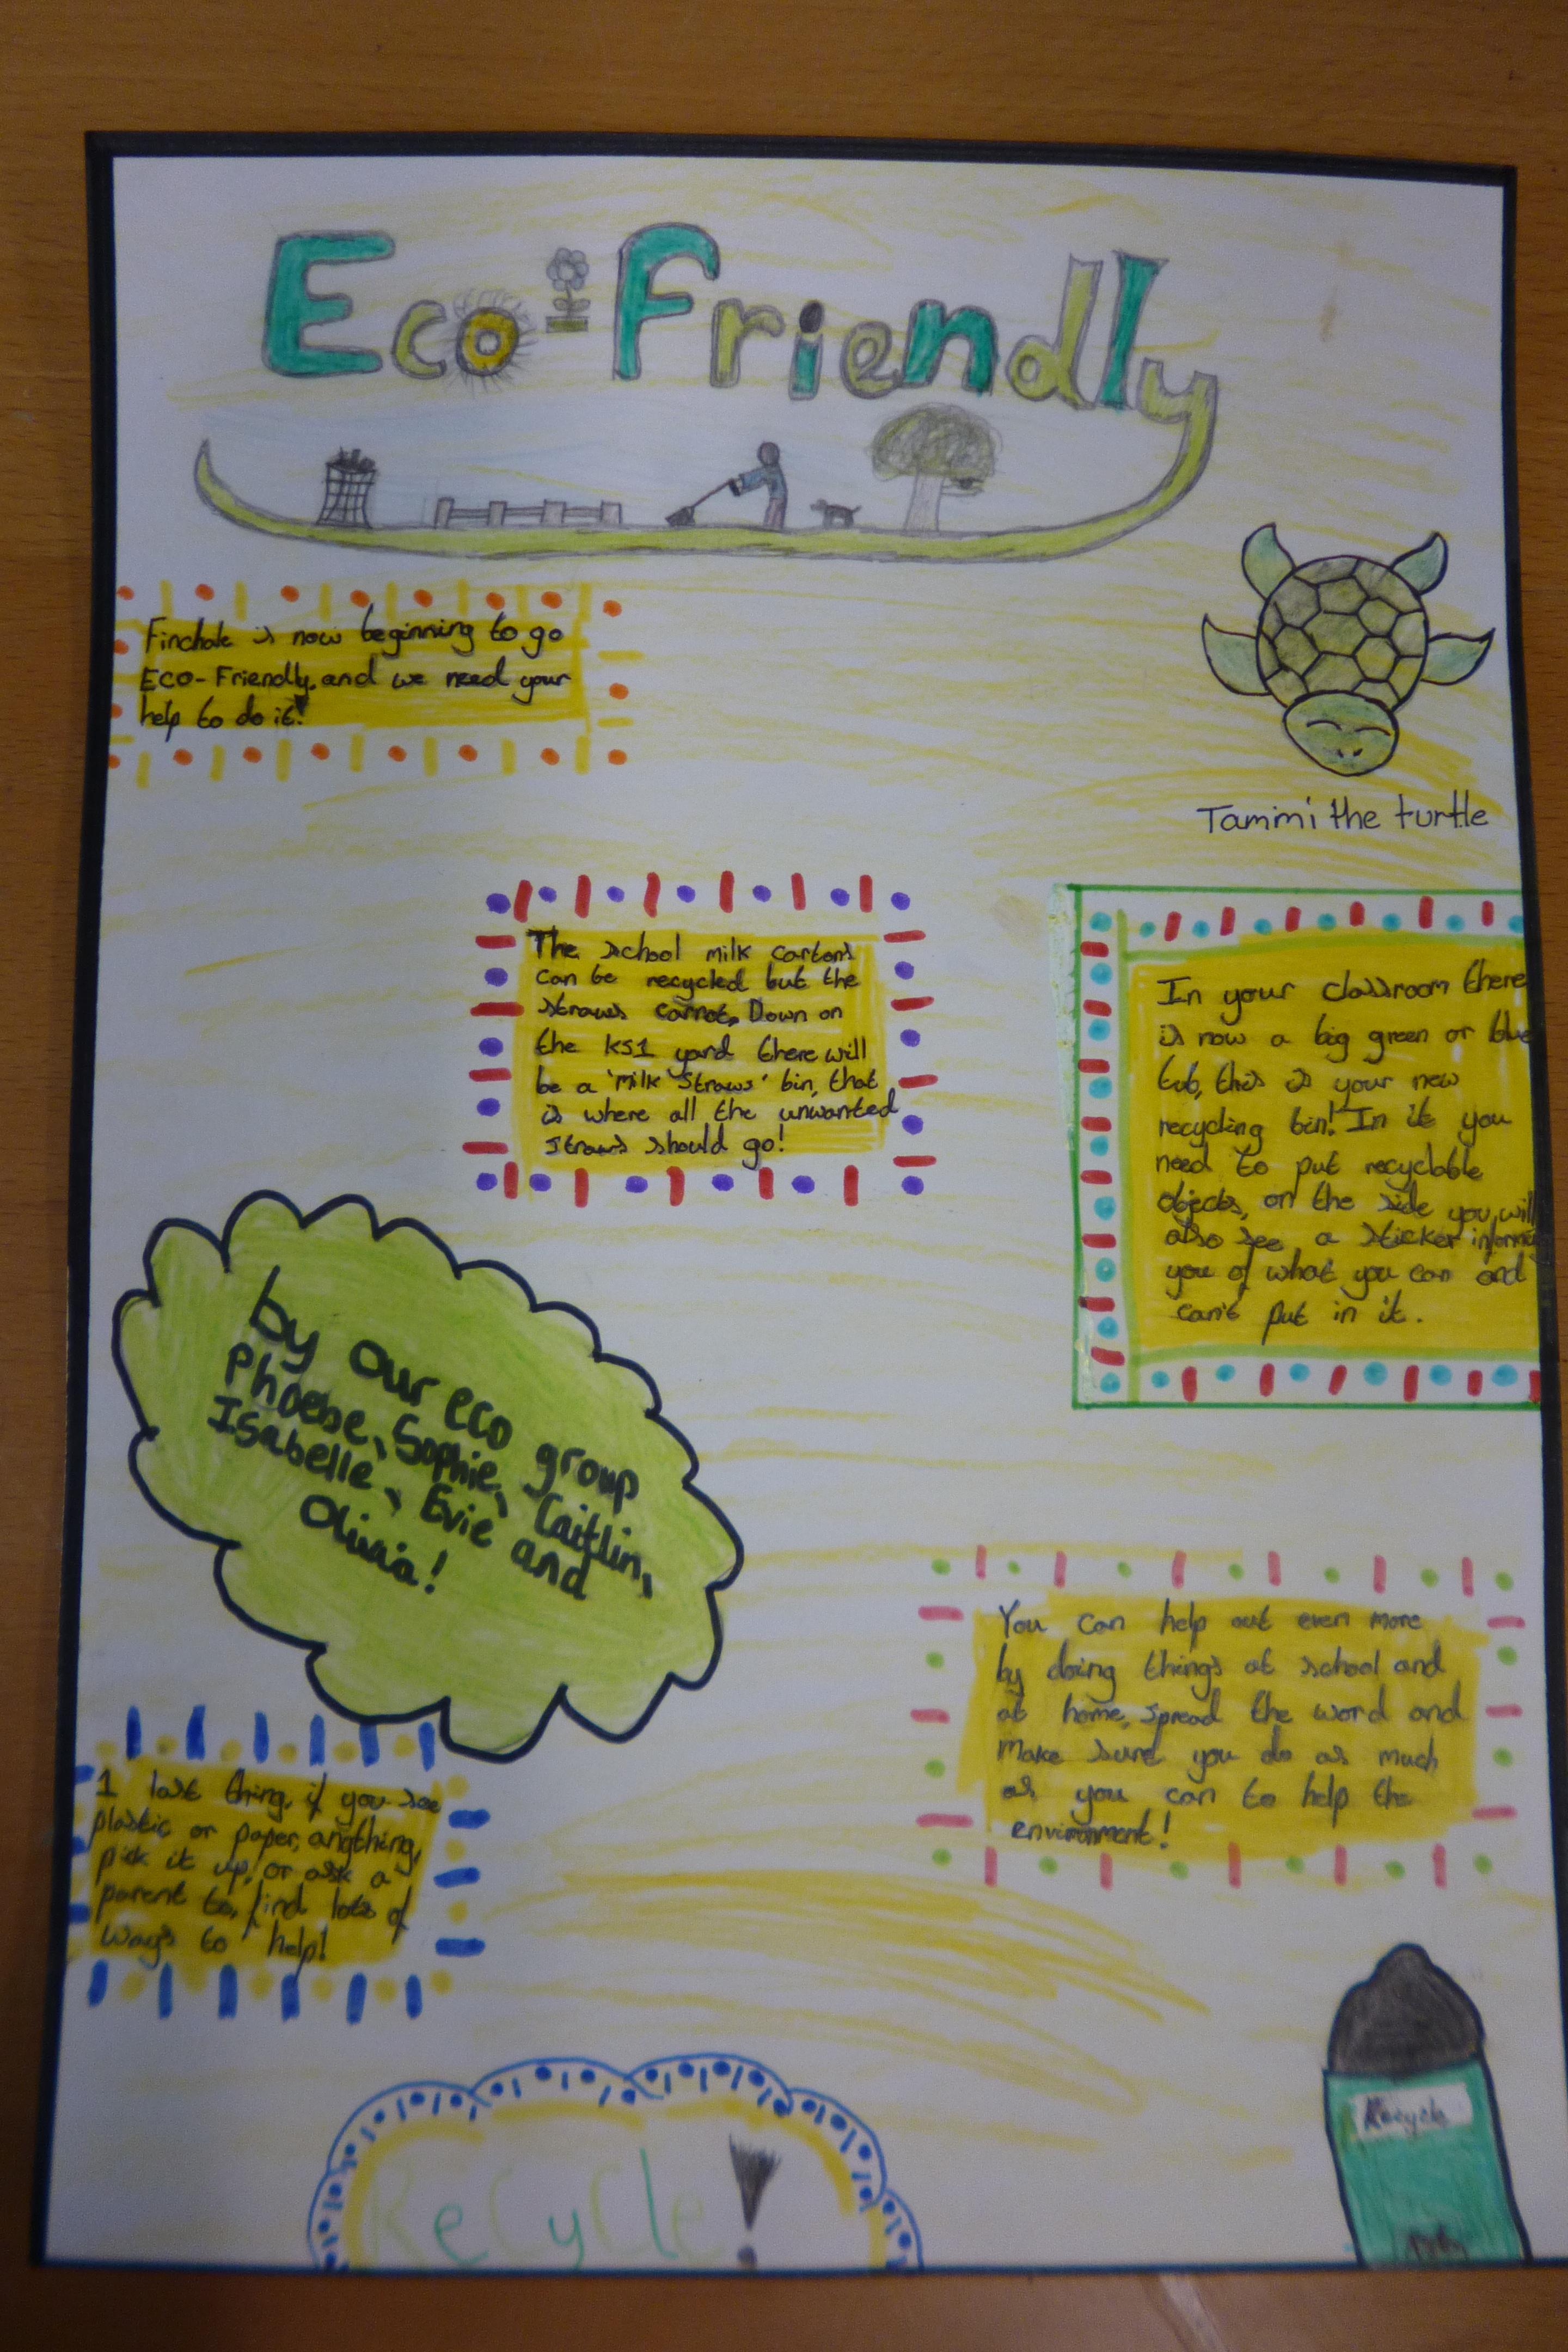 Eco-Friendly
Finchale is now beginning to go
Eco-Friendly, and we need your
help to do it!
Tammi the turtle
The school milk cartons
can be recycled but the
straws cannot. Down on
the KS1 yard there will
be a 'Milk Straws' bin, that
is where all the unwanted
straws should go!
In your classroom there
is now a big green or blue
tub, this is your new
recycling bin! In it you
need to put recyclable
objects, on the side you will
also see a sticker
you of what you can and
can't put in it.
by our eco group
Phoebe, Sophie, Caitlin,
Isabelle, Evie and
Olivia!
You can help out even more
by doing things at school and
at home, spread the word and
make sure you do as much
as you can to help the
environment!
1 last thing, if you see
plastic or paper, anything,
pick it up, or ask a
parent to, find lots of
ways to help!
Recycle!
Recycle